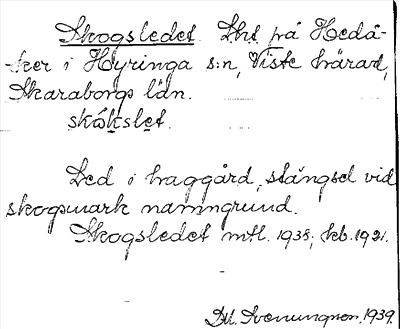 Skogsledet. Lht på Hedå-
ker i Hyringa s:n, Viste härad,
Skaraborgs län.
skókslet.
Led i haggård, stängsel vid
skogsmark namngrund.
Skogsledet mtl. 1938; kb. 1921.
1939.